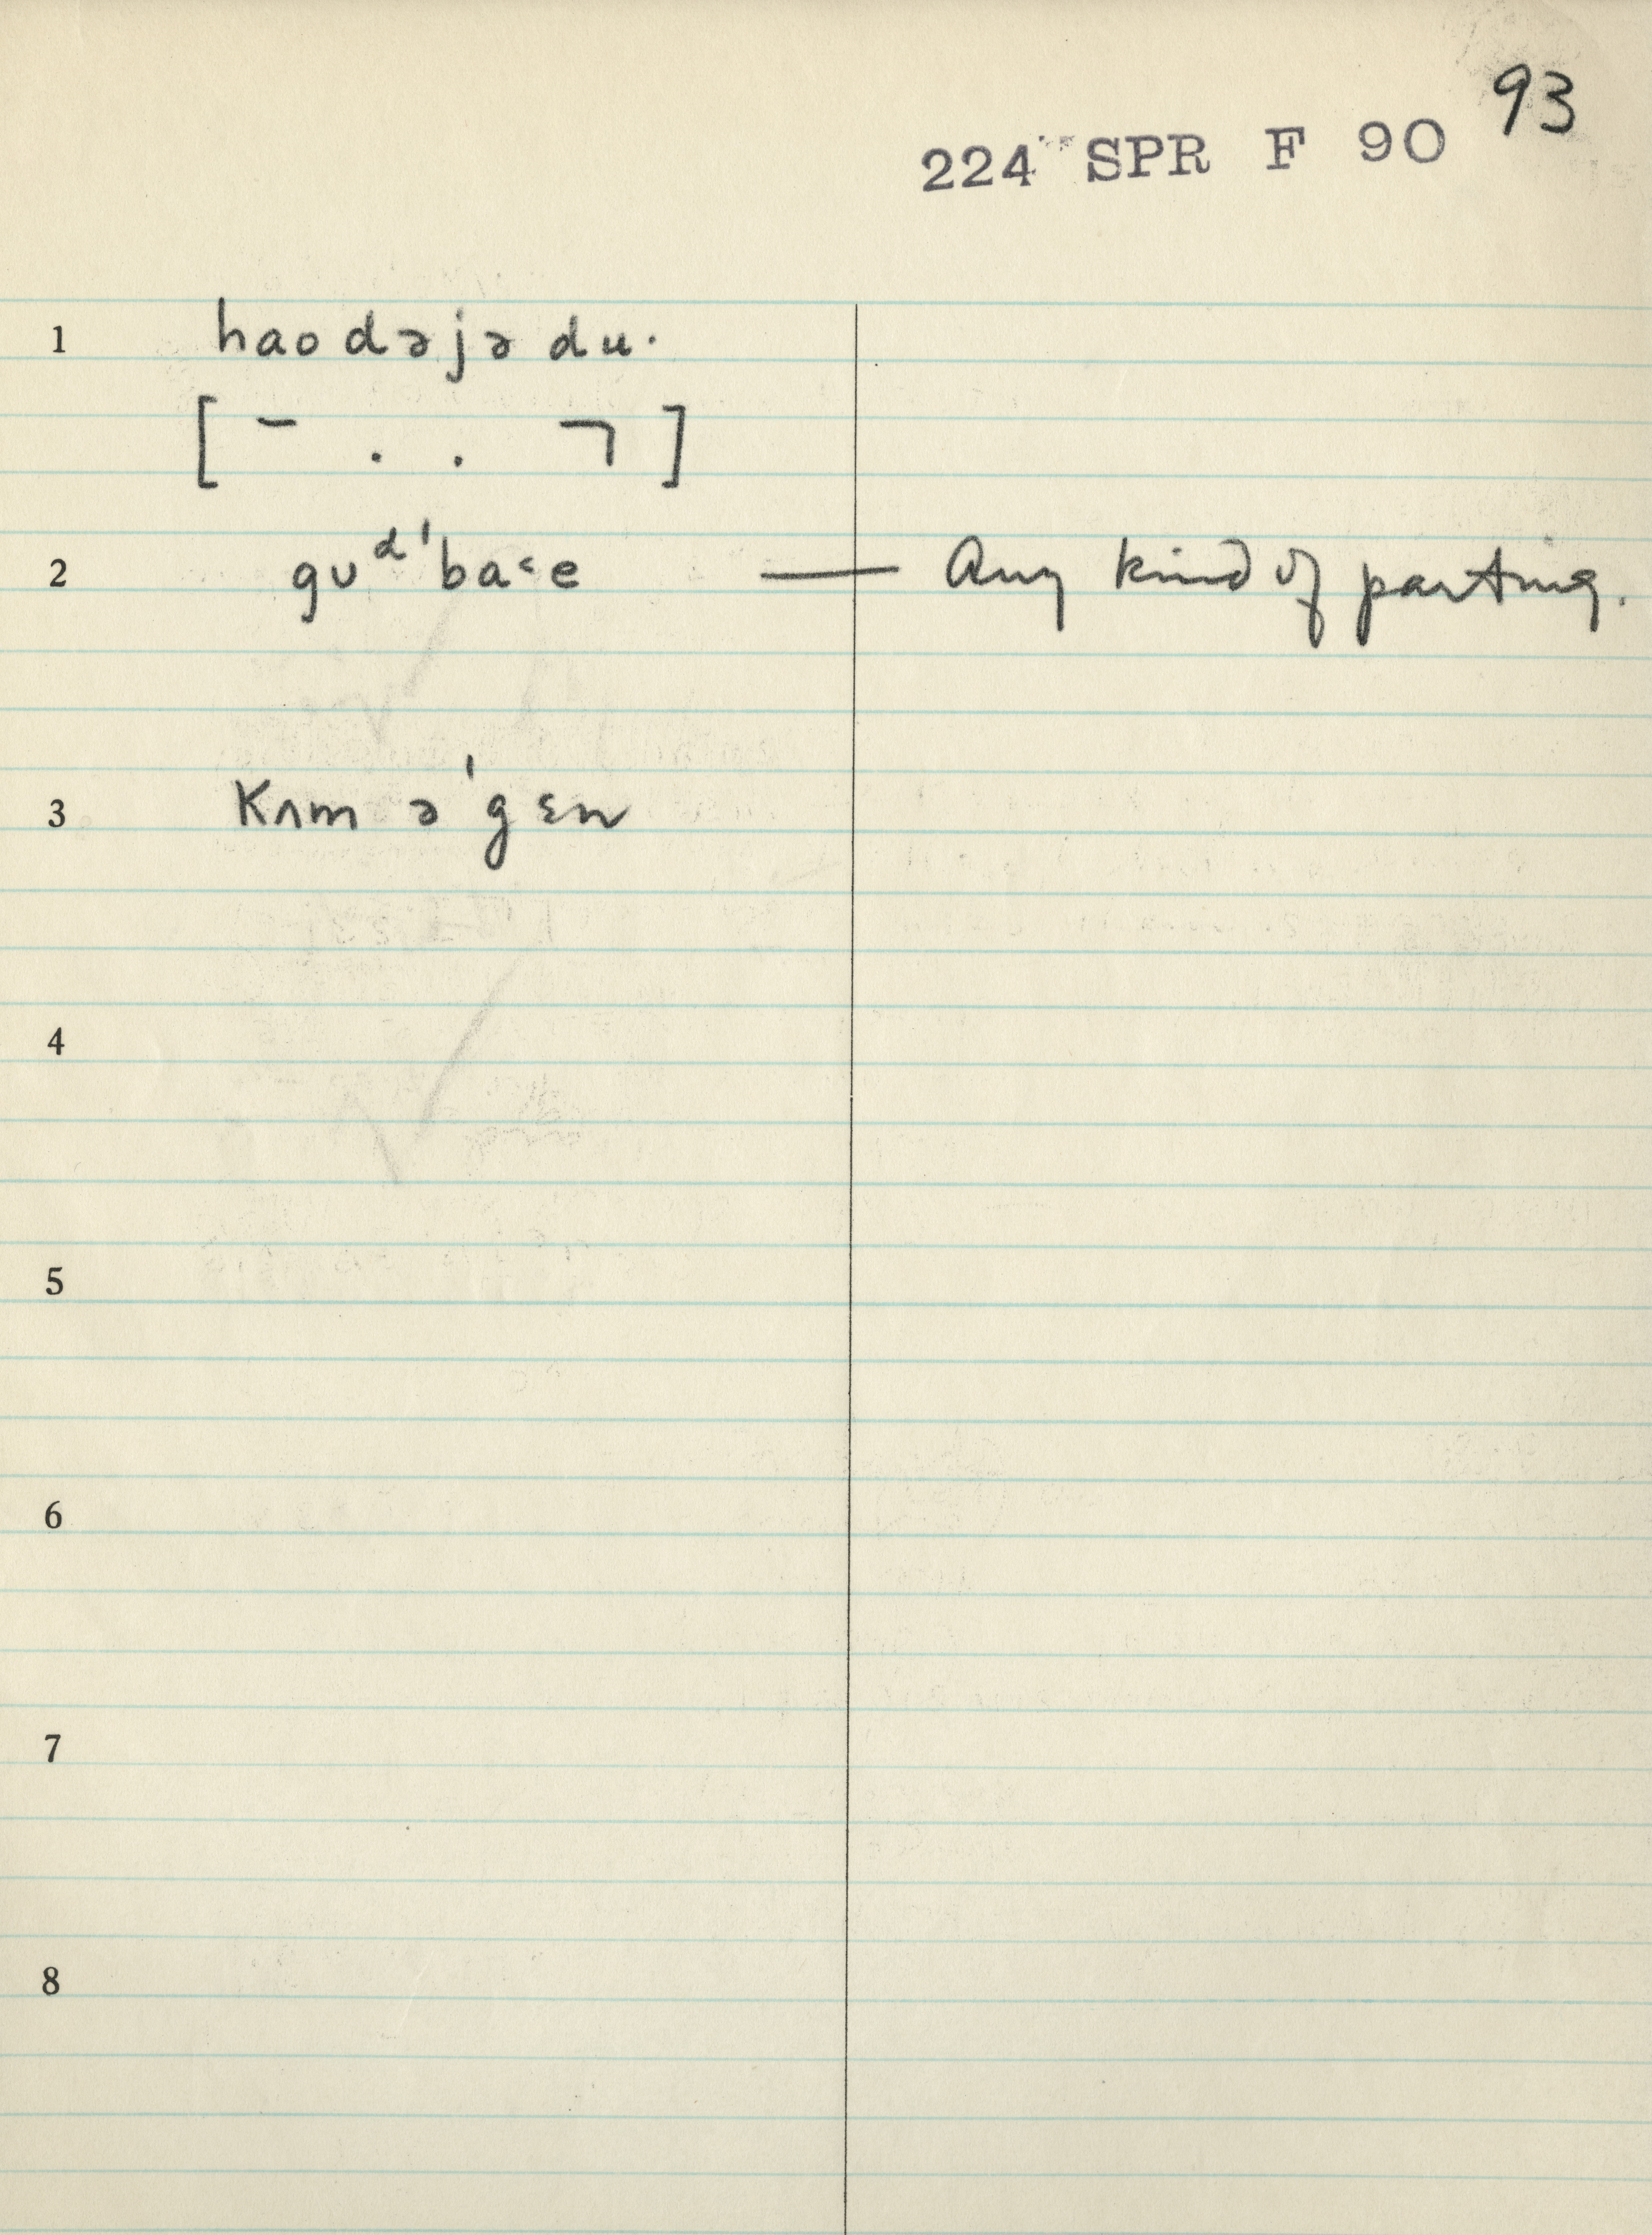 93
224 SPR F 90
1 haodəjə du·
[ ¯ . . ㄱ ]
2 gʊᵈˈba˂e — Any kind of parting.
3 Kʌm əˈgɛn
4
5
6
7
8